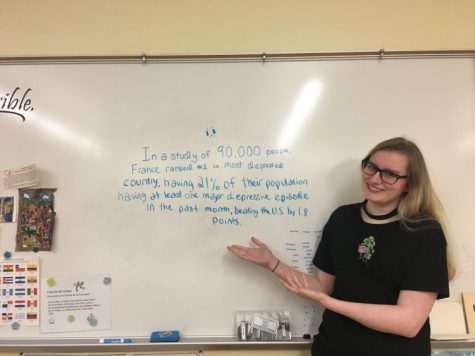 rible.
In a study of 90,000 people,
France ranked #1 in most depressed
country, having 21% of their population
having at least one major depressive episode
in the past month, beating the U.S. by 1.8
points.